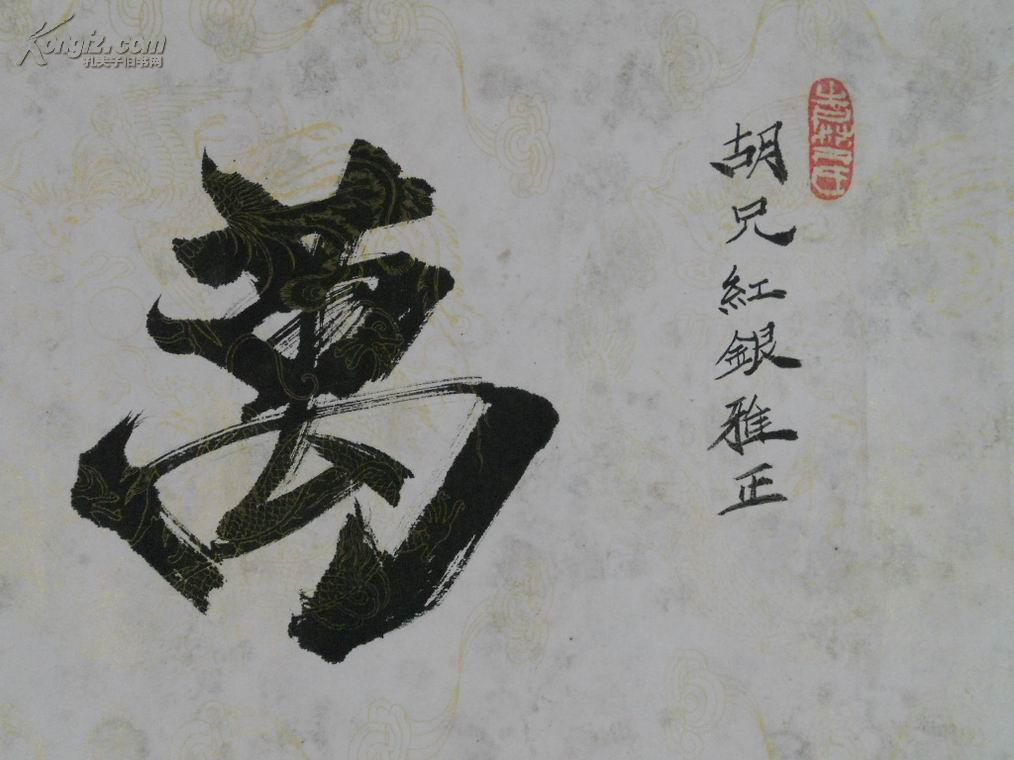 胡兄紅銀雅正
萬
Kongfz.com
孔夫子旧书网